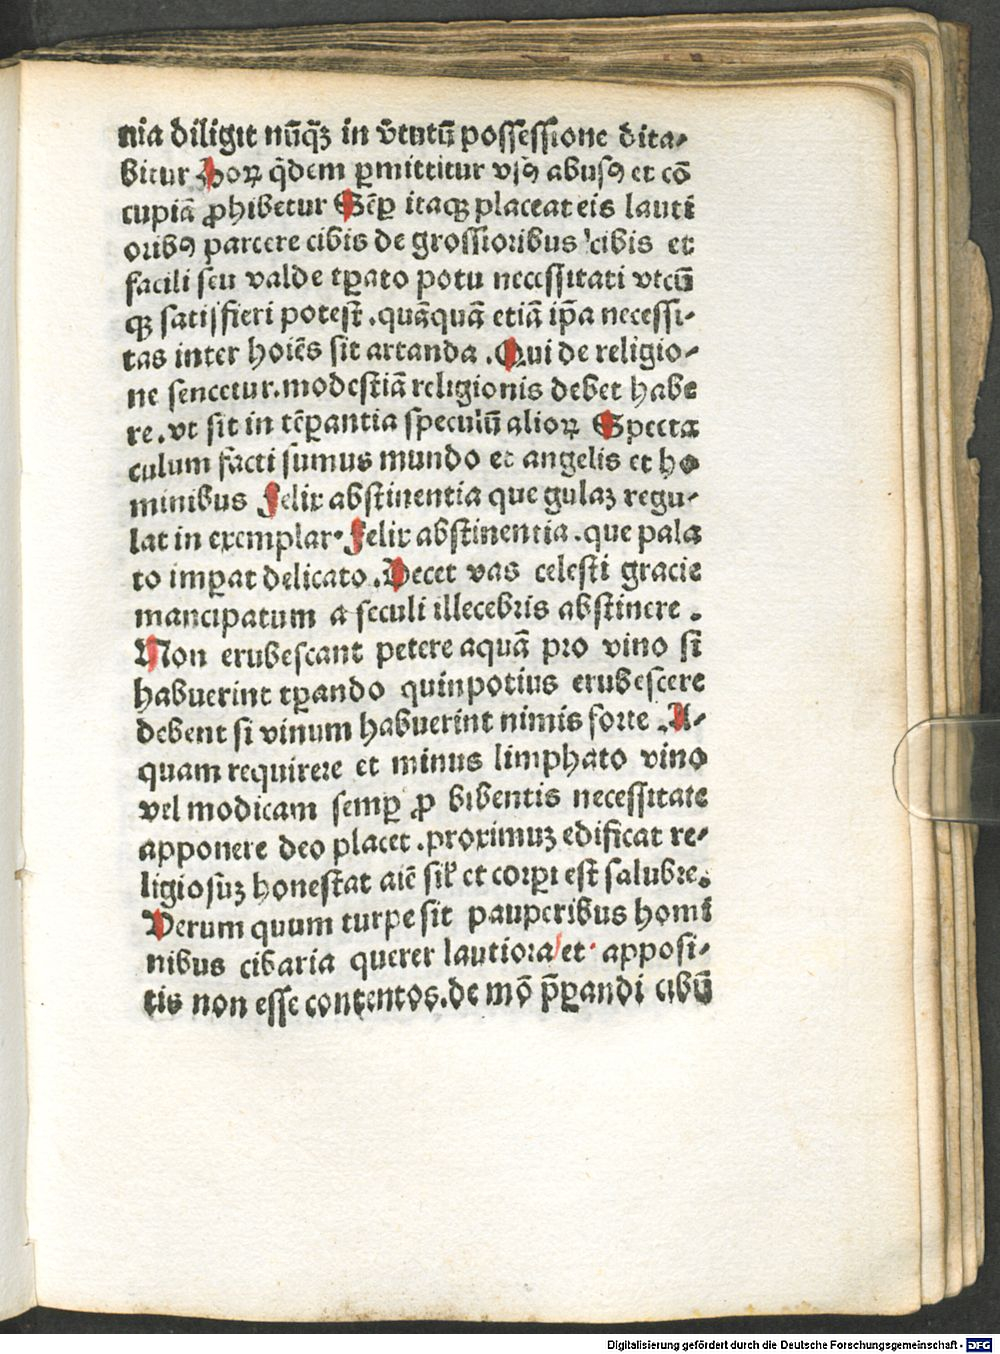 nia diligit nūq̄ꝫ in v̄tutū possessione dita-
bitur Hoꝝ q̄dem ꝑmittitur vsꝰ abusꝰ et cō
cupiā ꝓhibetur Sēꝑ itaqꝫ placeat eis lauti
oribꝰ parcere cibis de grossioribus cibis et
facili seu valde tꝑato potu necessitati vtcū
qꝫ satisfieri potest̄ .quāquā etiā ip̄a necessi-
tas inter hoiēs sit artanda .Qui de religio-
ne sencetur.modestiā religionis debet habe
re.vt sit in tēꝑantia speculū alioꝝ Specta
culum facti sumus mundo et angelis et ho
minibus Felix abstinentia que gulaꝫ regu-
lat in exemplar. Felix abstinentia .que pala
to imꝑat delicato .Decet vas celesti gracie
mancipatum a seculi illecebris abstinere .
Non erubescant petere aquā pro vino si
habuerint tꝑando quinpotius erubescere
debent si vinum habuerint nimis forte .A-
quam requirere et minus limphato vino
vel modicam semꝑ ꝓ bibentis necessitate
apponere deo placet .proximuꝫ edificat re-
ligiosūꝫ honestat aīe sil̓ et corꝑi est salubre.
Verum quum turpe sit pauperibus homi
nibus cibaria querer lautiora et apposi-
tis non esse contentos.de mō p̄ꝑandi cibū
Digitalisierung gefördert durch die Deutsche Forschungsgemeinschaft - DFG